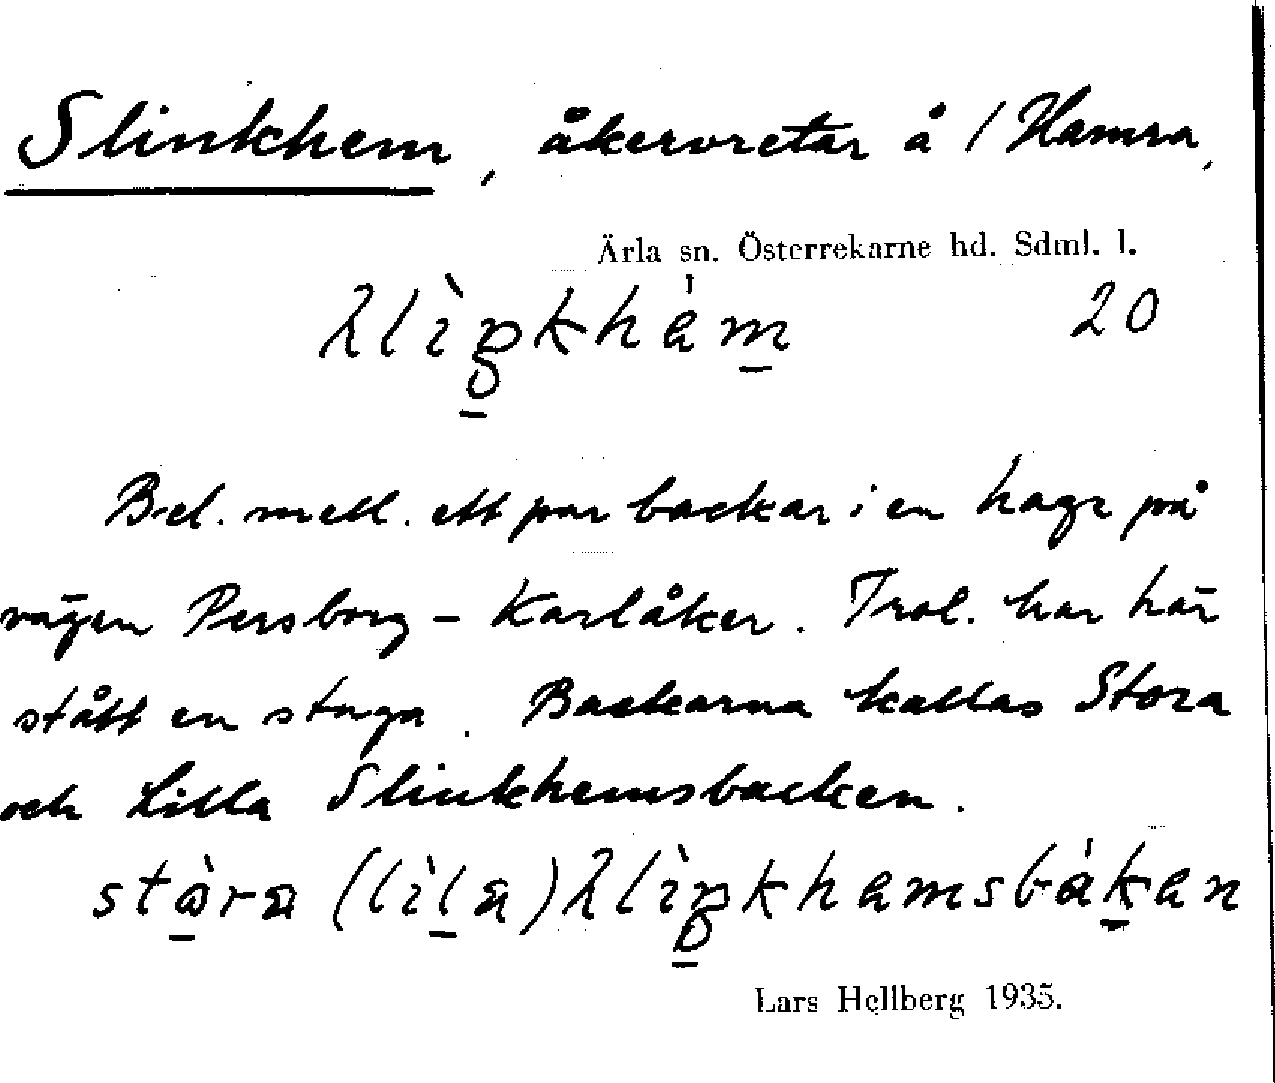 Slinkhem, åkervretar å / Hamra,
Ärla sn. Österrekarne hd. Sdml. l.
20
Bel. mell. ett par backar i en hage på
vägen Persborg - Karlåker. Trol. har här
stått en stuga. Backarna kallas Stora
och Lilla Slinkhemsbacken.
Lars Hellberg 1935.